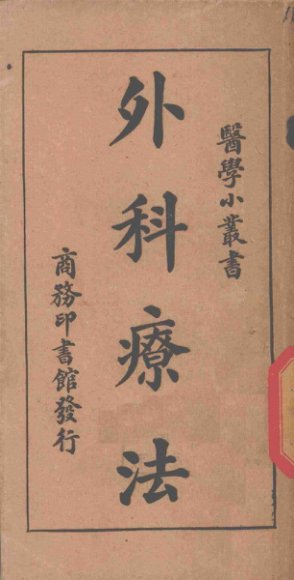 醫學小叢書
外科療法
商務印書館發行